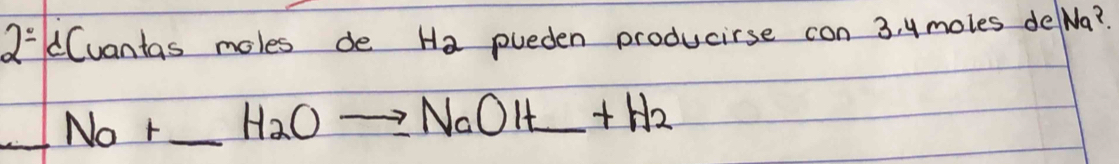 2º ¿Cuantas moles de H2 pueden producirse con 3.4 moles de Na?
__ Na + __ H2O → NaOH__ + H2